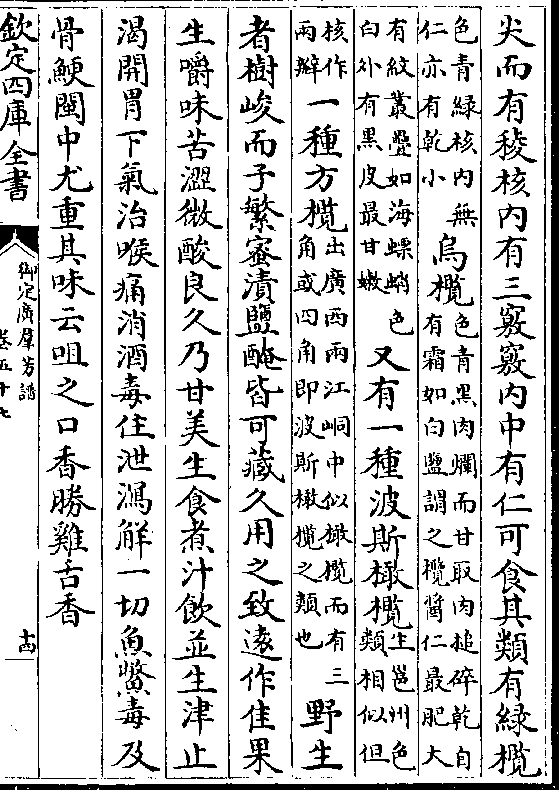 尖而有稜核内有三竅竅内中有仁可食其類有緑欖
色青緑核内無
仁亦有乾小
烏欖
色青黑肉爛而甘取肉搥碎乾自
有霜如白鹽謂之欖醬仁最肥大
有紋叢疊如海螵蛸色
白外有黑皮最甘嫩
又有一種波斯橄欖
生邕州色
類相似但
核作
兩瓣
一種方欖
出廣西兩江峒中似橄欖而有三
角或四角即波斯橄欖之類也
野生
者樹峻而子繁蜜漬鹽醃皆可藏久用之致遠作佳果
生嚼味苦澀微酸良久乃甘美生食煮汁飲並生津止
渴開胃下氣治喉痛消酒毒住泄瀉解一切魚鱉毒及
骨鯁閩中尤重其味云咀之口香勝雞舌香
欽定四庫全書
御定廣羣芳譜
卷五十七
十四